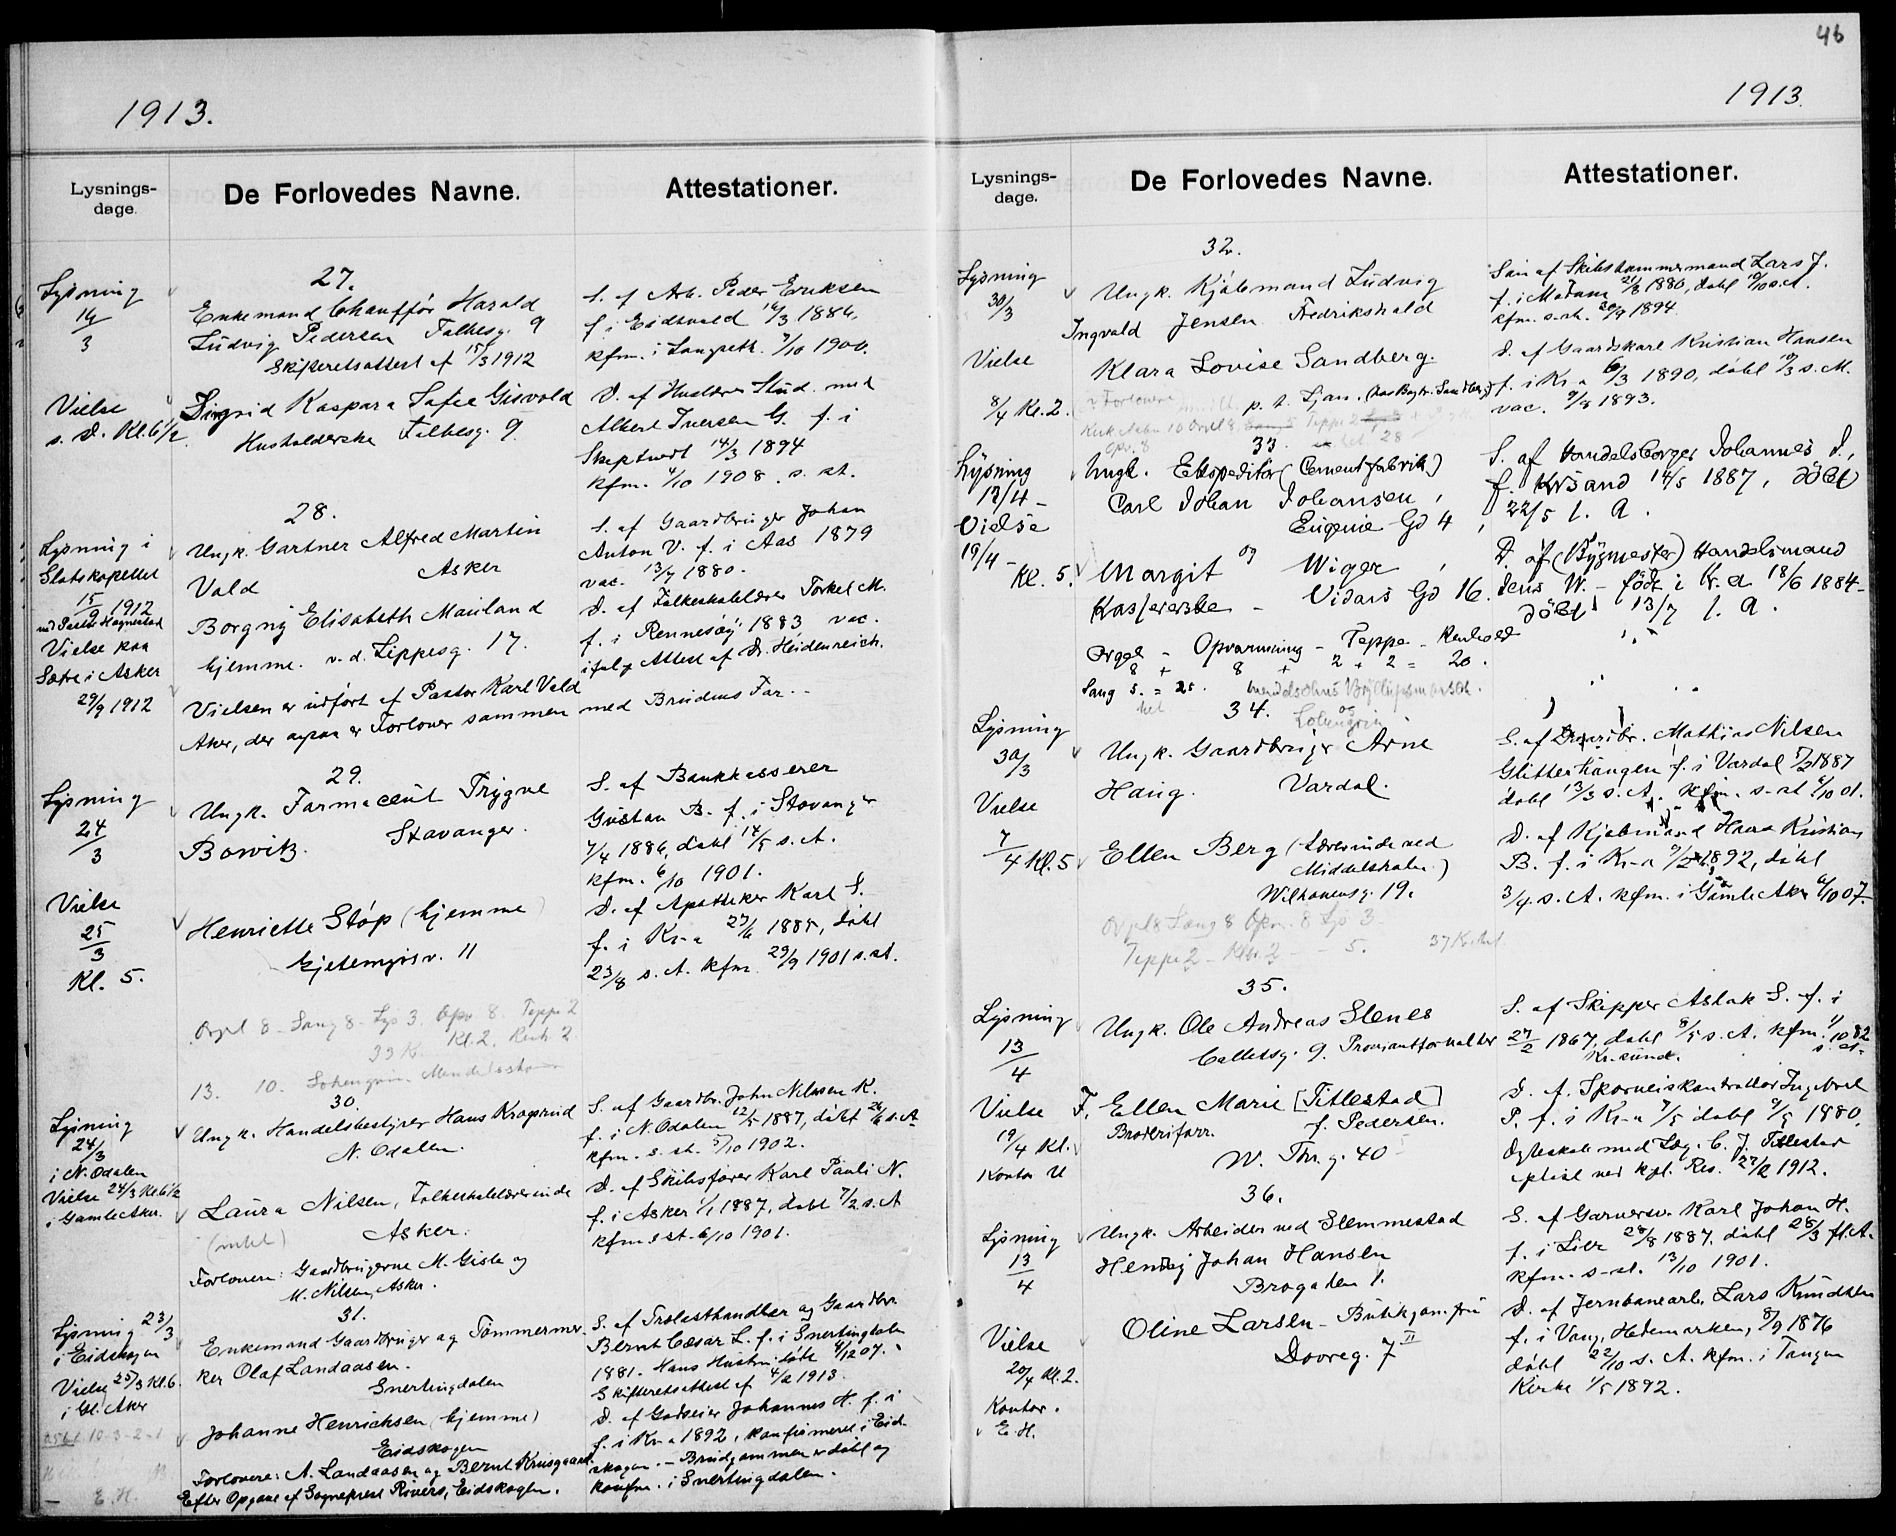 46
1913.
Lysnings-
dage.
De Forlovedes Navne.
Attestationer.
27.
Lysning
14/3
Enkemand Chauffør Harald
Ludvig Pedersen Falbesg. 9
Skifteretsattest af 15/3 1912
S. af Arb. Peder Eriksen
f. i Eidsvold 14/3 1886,
kfm. i Langseth 7/10 1900.
Vielse
s. D. Kl. 6 1/2
Sigrid Kaspara Gisvold
Husholderske Falbesg. 9
D. af Huslærer Stud. med
Albert Iversen G. f. i
Skeptvedt 14/3 1894
kfm. 4/10 1908. s. st.
28.
Lysning i
Slotskapellet
15/9 1912
ved Pastor Hognestad
Vielse paa
Sætre i Asker
29/9 1912
Ungk. Gartner Alfred Martin
Vold Asker
S. af Gaardbruger Johan
Anton V. f. i Aas 1879
vac. 13/7 1880.
Borgny Elisabeth Mauland
hjemme. v. d. Lippesg. 17.
D. af Folkeskolelærer Torkel M.
f. i Rennesøy 1883 vac.
ifølg Attest af Dr. Heidenreich.
Vielsen er udført af Pastor Karl Vold
Aker, der ogsaa er Forlover sammen med Brudens Far.
29.
Lysning
24/3
Ungk. Farmaceut Trygve
Bowitz. Stavanger.
S. af Bankkasserer
Gustav B. f. i Stavanger
7/4 1886, døbt 14/5 s. A.
kfm. 6/10 1901.
Vielse
25/3
Kl. 5.
Henriette Støp (hjemme)
Gjetemyrsv. 11
D. af Apotheker Karl S.
f. i Kr-a 27/6 1885, døbt
23/8 s. A. kfm. 29/9 1901 s. st.
Orgel 8 - Sang 8 - Lys 3. Opv 8. Teppe 2
33 K. Kl. 2.
13. 10. Lohengrin. Mendelssohn
30.
Lysning
24/3
i N. Odalen
Vielse 24/3 Kl. 6 1/2
i Gamle Aker.
Ungk. Handelsbestyrer Hans Kragsrud
N. Odalen.
S. af Gaardbr. John Nilssen K.
f. i N. Odalen 12/5 1887, døbt 26/6 s. A.
kfm. s. st. 5/10 1902.
Laura Nilsen, Folkeskolelærerinde
Asker.
D. af Skibsfører Karl Pauli N.
f. i Asker 1/1 1887, døbt 7/2 s. A
kfm. s st. 6/10 1901.
Forlovere: Gaardbrugerne M. Gisle og
M. Nilsen, Asker.
31.
Lysning 23/3
i Eidskogen
Vielse 25/3 Kl. 6.
i Gl. Aker
Enkemand Gaardbruger og Tømmermer-
ker Olaf Landaasen.
Snertingdalen
S. af Trælasthandler og Gaardbr.
Bernt Cæsar L. f. i Snertingdalen
1881. Hans Hustru døde 4/12 07.
Skifteretsattest af 4/2 1913.
Johanne Henrichsen (hjemme)
Eidskogen
D. af Godseier Johannes H. f. i
f. i Kr-a 1892, konfirmeret i Eid-
skogen. - Brudgommen er døbt og
konfm. i Snertingdalen.
Forlovere: A. Landaasen og Bernt Krusgaard.
Efter Opgave af Sogneprest Rivers, Eidskogen.
E. H.
1913.
Lysnings-
dage.
De Forlovedes Navne.
Attestationer.
32.
Lysning
30/3
Ungk. Kjøbmand Ludvig
Ingvald Jensen Fredrikshald
Søn af Skibstømmermand Lars J.
f. i 21/8 1880, døbt 10/10 s. A.
kfm. s. st. 30/9 1894
Vielse
8/4 Kl. 2.
Klara Lovise Sandberg.
p. t. Ljan.
D. af Gaardskarl Kristian Hansen
f. i Kr-a 6/3 1890, døbt s. M.
vac. 9/8 1893.
33.
Lysning
13/4 -
Vielse
19/4 -
Kl. 5.
Ungk. Ekspeditør (Cementfabrik)
Carl Johan Johansen,
Eugenie Gd 4,
og
Margit Wiger,
Kassererske - Vidars Gd 16.
S. af Handelsborger Johannes J.,
f. Krsand 14/5 1887, døbt
22/5 l. A.
D. af (Bygmester) Handelsmand
Jens W. - född i Kr. a 18/6 1884 -
döbt 13/7 l. A.
Orgel - Opvarmning - Teppe - Renhold
8 + 8 + 2 + 2 = 20.
Sang 5. = 25. Mendelsohns Bryllupsmarsch.
og
Lohengrin
34.
Lysning
30/3
Ungk. Gaardbruger Arne
Haug. Vardal.
S. af Gaardbr. Mathias Nilsen
Glitterhaugen f. i Vardal 5/2 1887
døbt 13/3 s. A. kfm. s-st 6/10 01.
Vielse
7/4 Kl. 5
Ellen Berg (Lærerinde ved
Middelskolen)
Wilhamsg. 19.
D. af Kjøbmand Hans Kristian
B. f. i Kr-a 9/2 1892, døbt
3/4 s. A. kfm. i Gamle Aker 6/10 07.
Orgel 8 Sang 8 Opv. 8 Lys 3
Teppe 2 - 5. 37 K.
35.
Lysning
13/4
Ungk. Ole Andreas Stenes
Colletsg. 9. Proviantforvalter
S. af Skipper Aslak S. f. i
27/2 1867, døbt 8/5 s. A. kfm. 1/10 82
Kr.sund. s. st.
Vielse
19/4 Kl. 1
Kontor
F. Ellen Marie [Tittestad]
Broderiforr. f. Pedersen.
W. Thr. g. 40
D. af Sporveiskontrollør Ingebret
P. f. i Kr-a 7/5 døbt 9/5 1880.
Egteskab med Læg. C. J. Tittestad
opløst ved kgl. Res. 27/12 1912.
36.
Lysning
13/4
Ungk. Arbeider ved Slemmestad
Henry Johan Hansen
Brogaden 1.
S. af Garversv. Karl Johan H.
f. i Lier 28/8 1887. døbt 25/3 fl. A.
kfm. s-st. 13/10 1901.
Vielse
20/4 Kl. 2.
Kontor.
E. H.
Oline Larsen - Butikjomfru
Dovreg. 7 II
D. af Jernbanearb. Lars Knudsen
f. i Vang, Hedemarken, 8/9 1876
døbt 22/10 s. A. kfm. i Tangen
Kirke 1/5 1892.